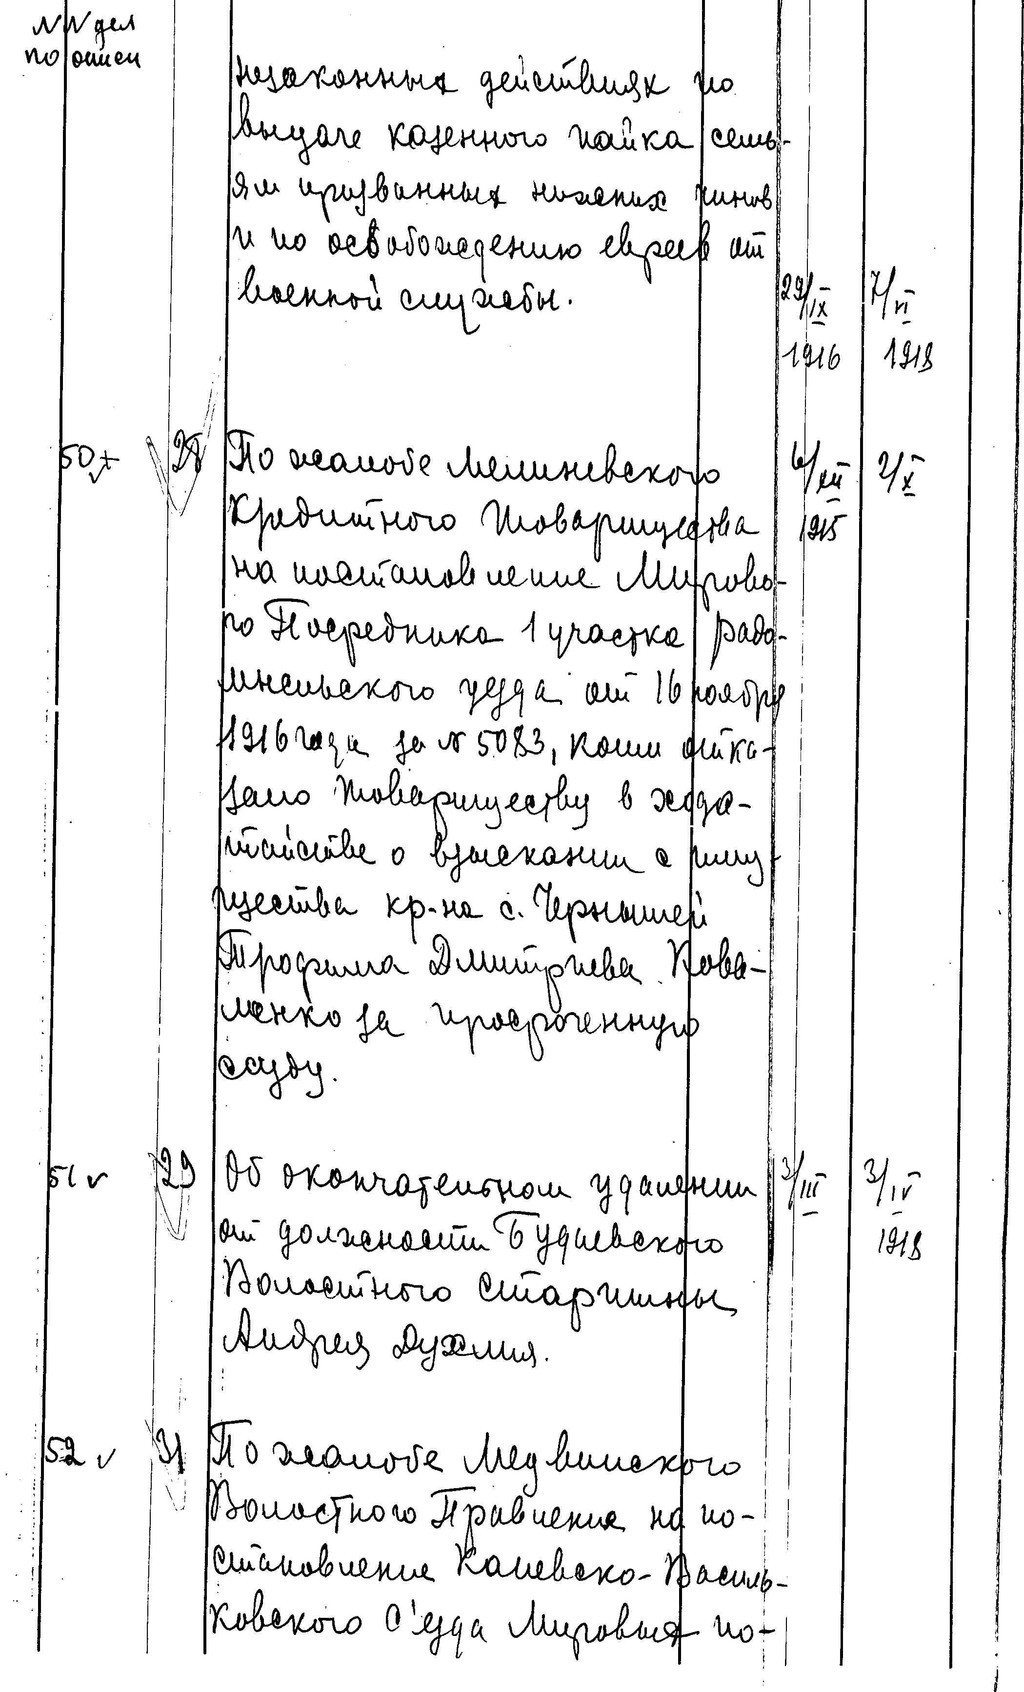 NN дел
по описи
незаконных действиях по
выдаче казенного пайка семь-
ям призванных нижних чинов
и по освобождению евреев от
военной службы.
29/IX 1916 7/VI 1918
50 28 По жалобе Мелиневского 6/XII 1915 2/X
Кредитного Товарищества
на постановление Мирово-
го Посредника 1 участка Радо-
мысльского уезда от 16 ноября
1916 года за № 5083, коим отка-
зано Товариществу в хода-
тайстве о взыскании с иму-
щества кр-на с. Чернышей
Трофима Дмитриева Кова-
ленко за просроченную
ссуду.
51 29 Об окончательном удалении 3/III 3/IV 1918
от должности Будаевского
Волостного Старшины
Андрея Духлия.
52 31 По жалобе Медвинского
Волостного Правления на по-
становление Каневско-Василь-
ковского С'езда Мировых по-